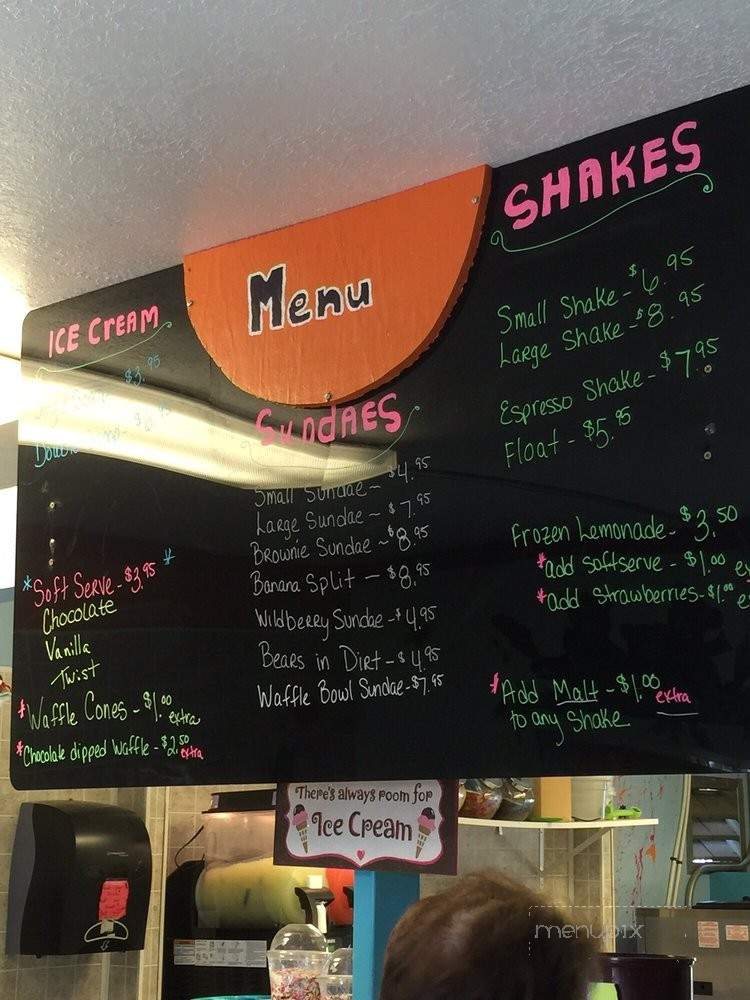 Menu
ICE CREAM
$3.95
Soft Serve - $3.95
Chocolate
Vanilla
Twist
*Waffle Cones - $1.00 extra
*Chocolate dipped Waffle - $2.50 extra
SUNDAES
Small Sundae - $4.95
Large Sundae - $7.95
Brownie Sundae - $8.95
Banana Split - $8.95
Wildberry Sundae - $4.95
Bears in Dirt - $4.95
Waffle Bowl Sundae - $7.95
SHAKES
Small Shake - $6.95
Large Shake - $8.95
Espresso Shake - $7.95
Float - $5.95
Frozen Lemonade - $3.50
*add softserve - $1.00
*add strawberries - $1.00
*Add Malt - $1.00 extra
to any Shake
There's always room for
Ice Cream
menupix